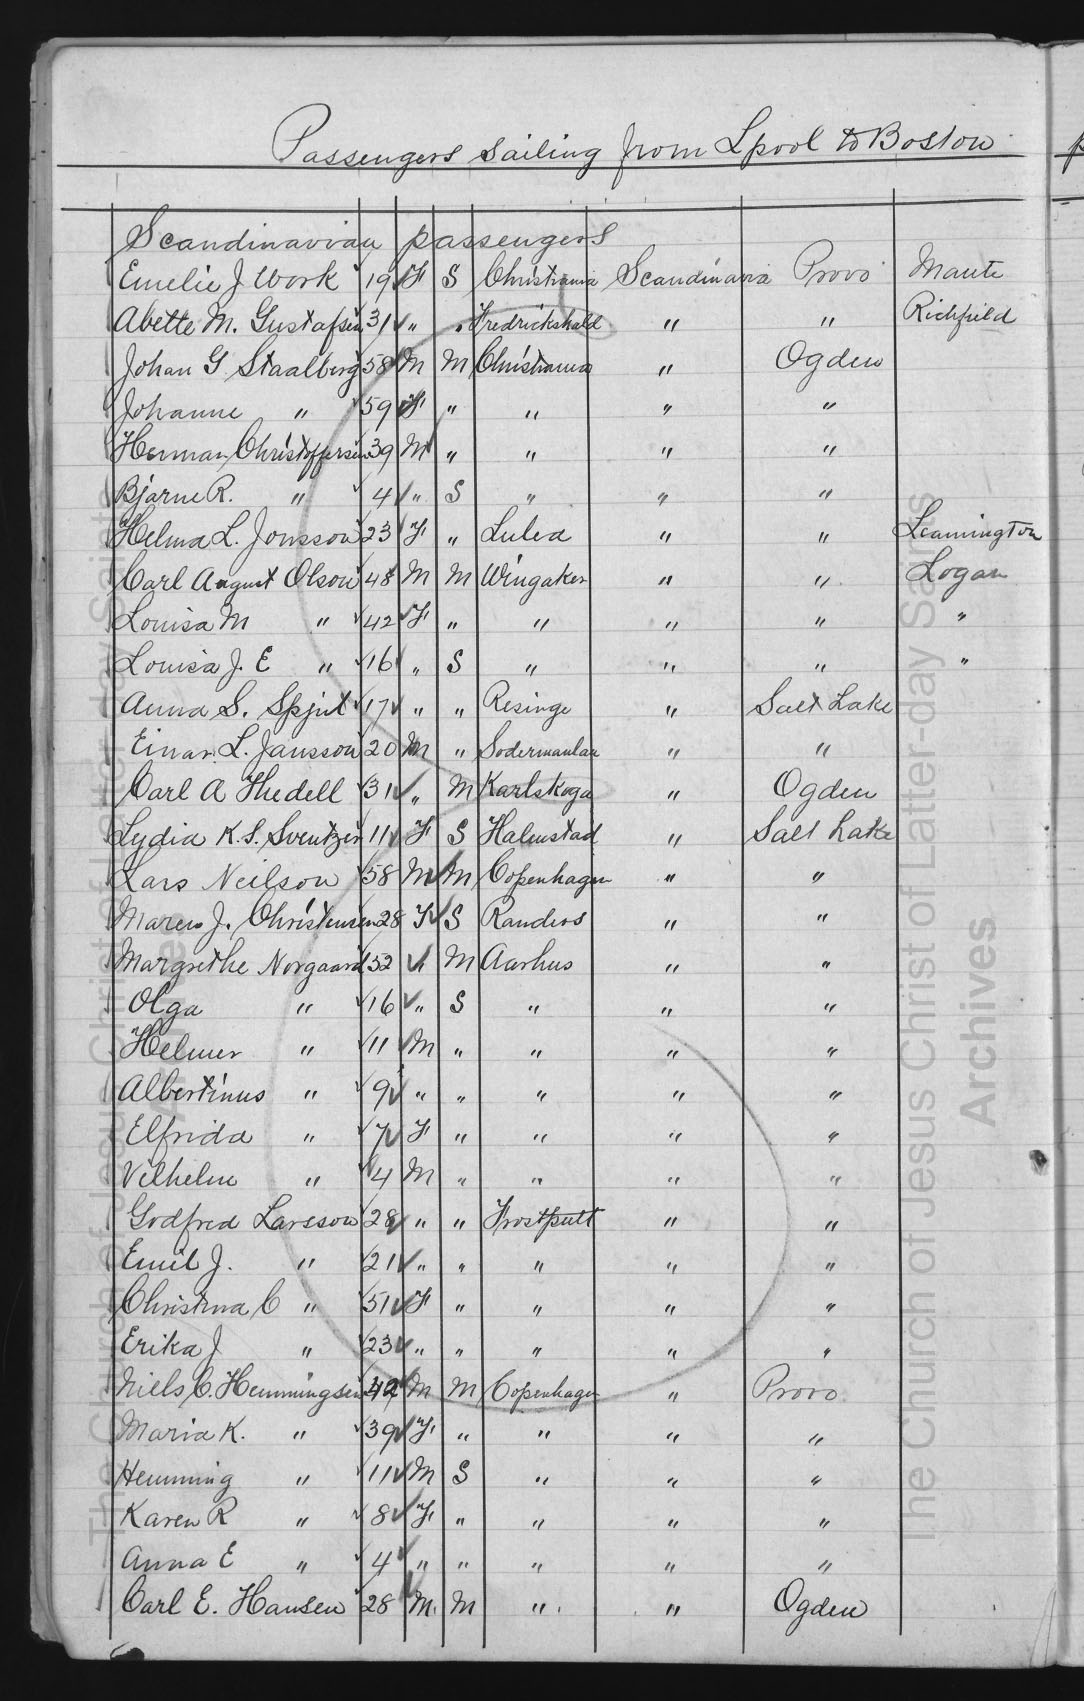 Passengers sailing from Lpool to Boston
Scandinavian passengers
Emelie J Work 19 F S Christiania Scandinavia Provo Mante
Abette M. Gustafsen 31 " " Fredrickshald " " Richfield
Johan G Staalberg 58 M M Christiania " Ogden
Johanne " 59 F " " " "
Herman Christoffersen 39 M " " " "
Bjarne R. " 4 " S " " "
Helma L. Jonsson 23 F " Lulea " " Leamington
Carl August Olson 48 M M Wingaker " " Logan
Louisa M " 42 F " " " " "
Louisa J. E " 16 " S " " " "
Anna S. Spjut 17 " " Resinge " Salt Lake
Einar L. Jansson 20 M " Sodermanlan " "
Carl A Hedell 31 " M Karlskoga " Ogden
Lydia K. S. Sventzen 11 F S Halmstad " Salt Lake
Lars Neilson 58 M M Copenhagen " "
Maren J. Christensen 28 F S Randers " "
Margrethe Norgaard 52 " M Aarhus " "
Olga " 16 " S " " "
Helmer " 11 M " " " "
Albertinus " 9 " " " " "
Elfrida " 7 F " " " "
Vilhelm " 4 M " " " "
Godfred Larsson 28 " " Frostpult " "
Emil J. " 21 " " " " "
Christina C " 51 F " " " "
Erika J " 23 " " " " "
Niels C. Hemmingsen 42 M M Copenhagen " Provo
Maria K. " 39 F " " " "
Hemming " 11 M S " " "
Karen R " 8 F " " " "
Anna E " 4 " " " " "
Carl E. Hansen 28 M. M " " Ogden
The Church of Jesus Christ of Latter-day Saints
Archives
The Church of Jesus Christ of Latter-day Saints
Archives